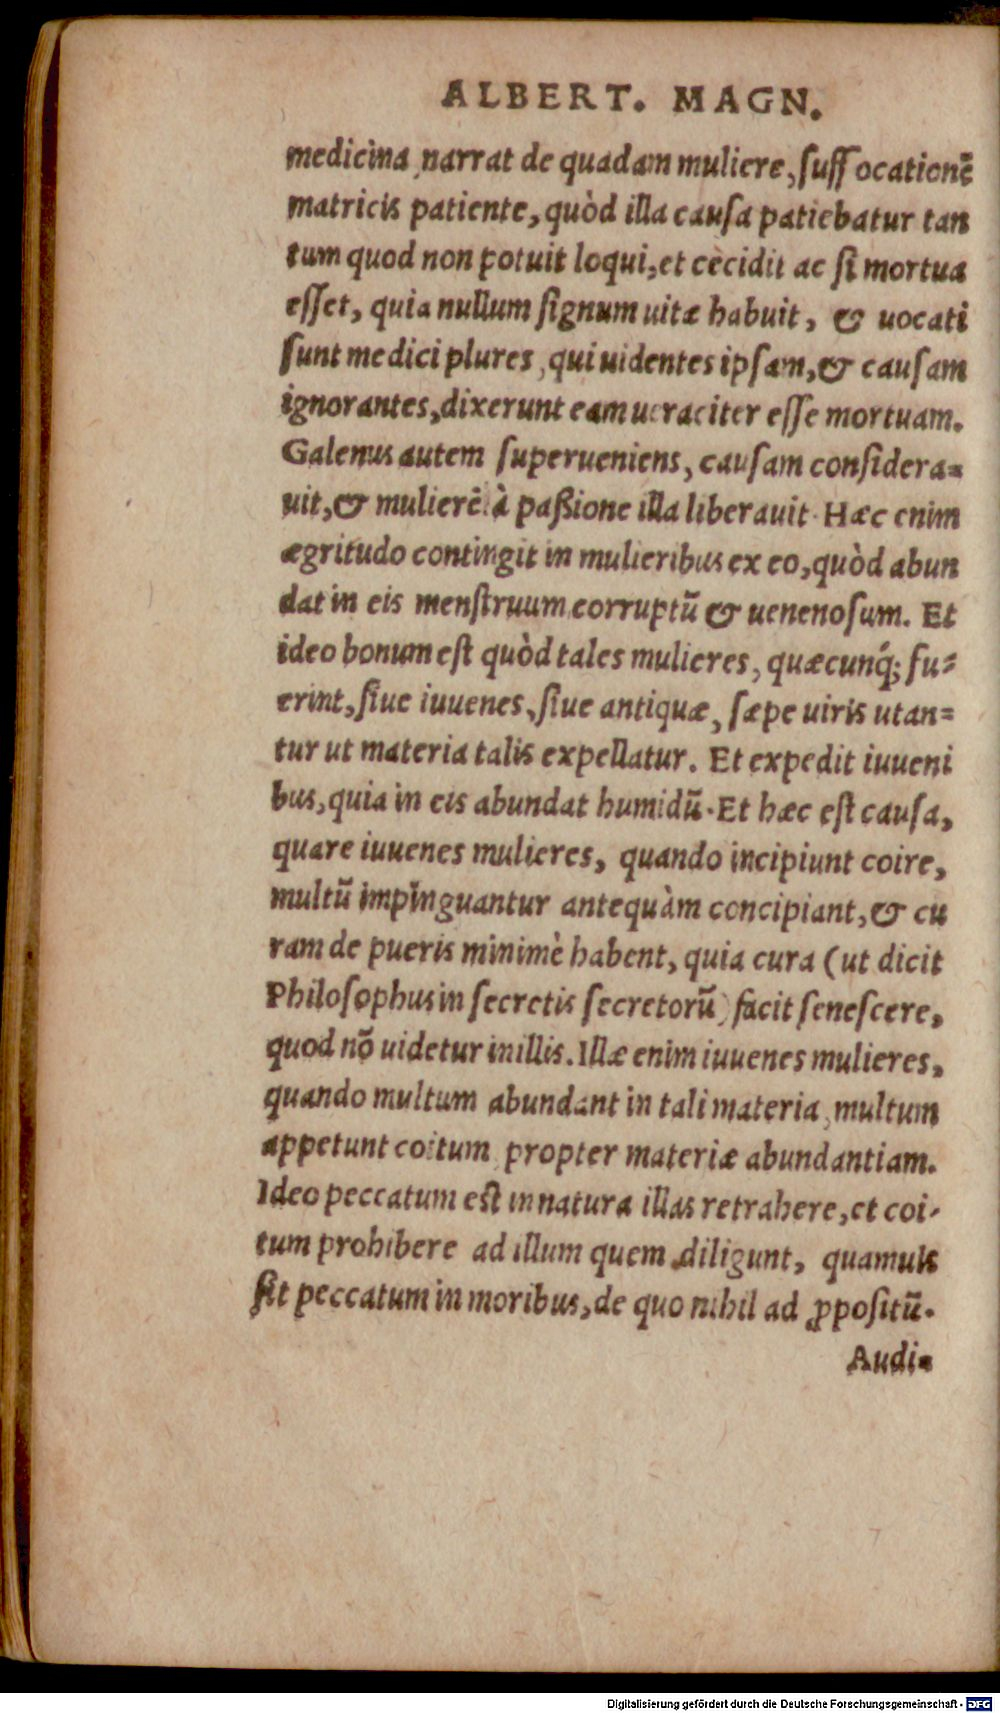 ALBERT. MAGN.
medicina, narrat de quadam muliere, ſuffocationẽ
matricis patiente, quòd illa cauſa patiebatur tan
tum quod non potuit loqui, et cecidit ac ſi mortua
eſſet, quia nullum ſignum uitæ habuit, & uocati
ſunt medici plures, qui uidentes ipſam, & cauſam
ignorantes, dixerunt eam ueraciter eſſe mortuam.
Galenus autem ſuperueniens, cauſam conſidera-
uit, & mulierẽ à paßione illa liberauit. Hæc enim
ægritudo contingit in mulieribus ex eo, quòd abun
dat in eis menſtruum corruptũ & uenenoſum. Et
ideo bonum eſt quòd tales mulieres, quæcunq́; fu-
erint, ſiue iuuenes, ſiue antiquæ, ſæpe uiris utan-
tur ut materia talis expellatur. Et expedit iuueni
bus, quia in eis abundat humidũ. Et hæc eſt cauſa,
quare iuuenes mulieres, quando incipiunt coire,
multũ impinguantur antequàm concipiant, & cu
ram de pueris minimè habent, quia cura (ut dicit
Philoſophus in ſecretis ſecretorũ) facit ſeneſcere,
quod nõ uidetur in illis. Illæ enim iuuenes mulieres,
quando multum abundant in tali materia, multum
appetunt coitum propter materiæ abundantiam.
Ideo peccatum eſt in natura illas retrahere, et coi-
tum prohibere ad illum quem diligunt, quamuis
ſit peccatum in moribus, de quo nihil ad ꝓpoſitũ.
Audi-
Digitalisierung gefördert durch die Deutsche Forschungsgemeinschaft - DFG